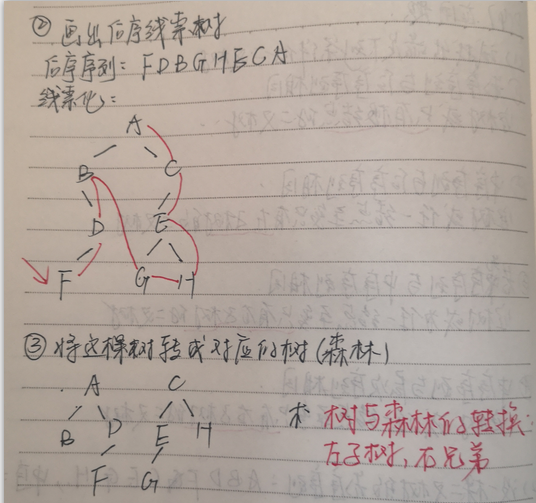 ② 画出后序线索树
后序序列: FDBGHECA
线索化:
A
B C
D E
F G H
③ 将这棵树转成对应的树(森林)
A C
B D E H
F G
树与森林的转换:
左子树,右兄弟